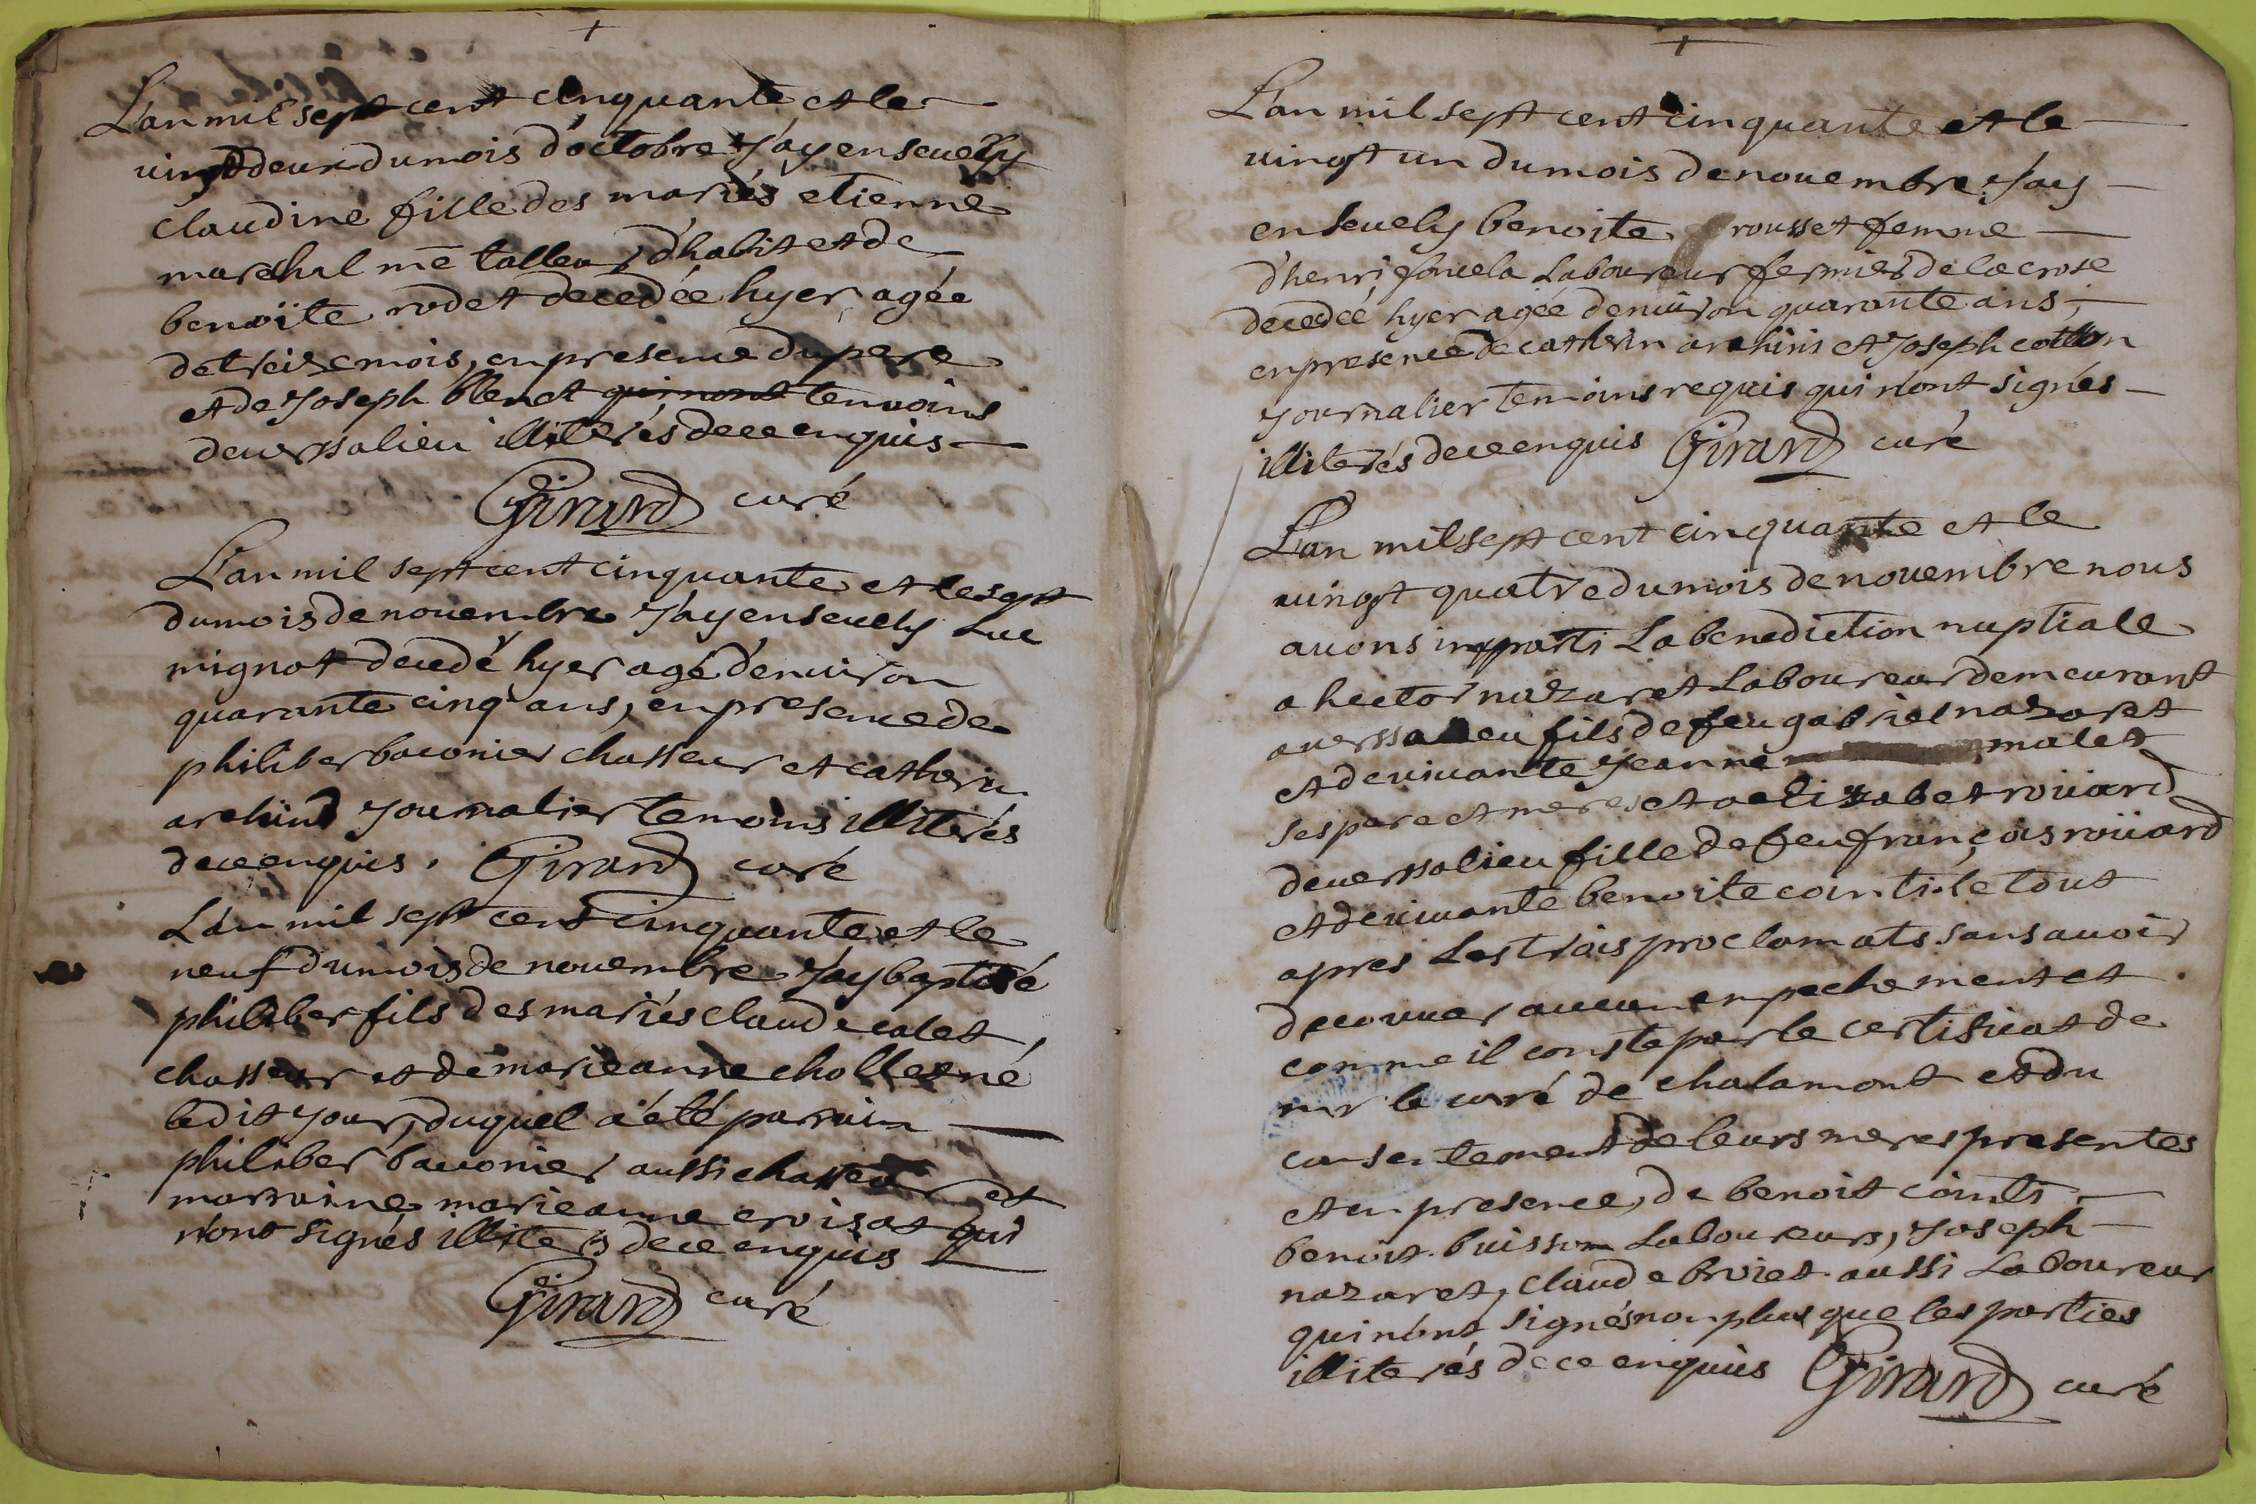 L'an mil sept cent cinquante et le
vingt deux du mois d'octobre J'ay enseuely
claudine fille des mariés etienne
mareshal me talleur d'habit et de
benoite rodet decedée hyer agée
de treize mois, en presence du pere
et de Joseph blenet qui n'ont temoins
de uersalieu illiterés de ce enquis
Girard curé
L'an mil sept cent cinquante et le sept
du mois de nouembre J'ay enseuely Luc
mignot decedé hyer agé d'enuiron
quarante cinq ans, en presence de
philiber bauonier chasseur et catherin
Journalier temoins illiterés
de ce enquis. Girard curé
L'an mil sept cent cinquante et le
neuf du mois de nouembre J'ay baptisé
philiber fils des mariés claude calet
chasseur et de marieanne chollet né
ledit Jour, duquel a été parrain
philiber bauonier aussi chasseur et
marraine marieanne croisat qui
n'ont signés illiterés de ce enquis
Girard curé
L'an mil sept cent cinquante et le
vingt un du mois de nouembre J'ay
enseuely benoite rousset femme
d'henri Laboureur fermier de la crose
decedée hyer agée d'enuiron quarante ans,
en presence de catherin et Joseph cotton
Journalier temoins requis qui n'ont signés
illiterés de ce enquis Girard curé
L'an mil sept cent cinquante et le
uingt quatre du mois de nouembre nous
auons imparti La benediction nuptiale
a hector nazaret Laboureur demeurant
a uerssalieu fils de feu gabriel nazaret
et de uiuante Jeanne malet
ses pere et meres et a elizabet roüard
de uersalieu fille de feu françois roüard
et de uiuante benoite cointi le tout
apres Les trois proclamats sans auoir
decouuer aucun enpechement et
comme il conste par le certificat de
mr le curé de chalamont et du
consentement de leurs meres presentes
et en presence, de benoit cointi
benoit buisson Laboureurs, Joseph
nazaret, claude broiet aussi Laboureur
qui n'ont signés non plus que les parties
illiterés de ce enquis Girard curé